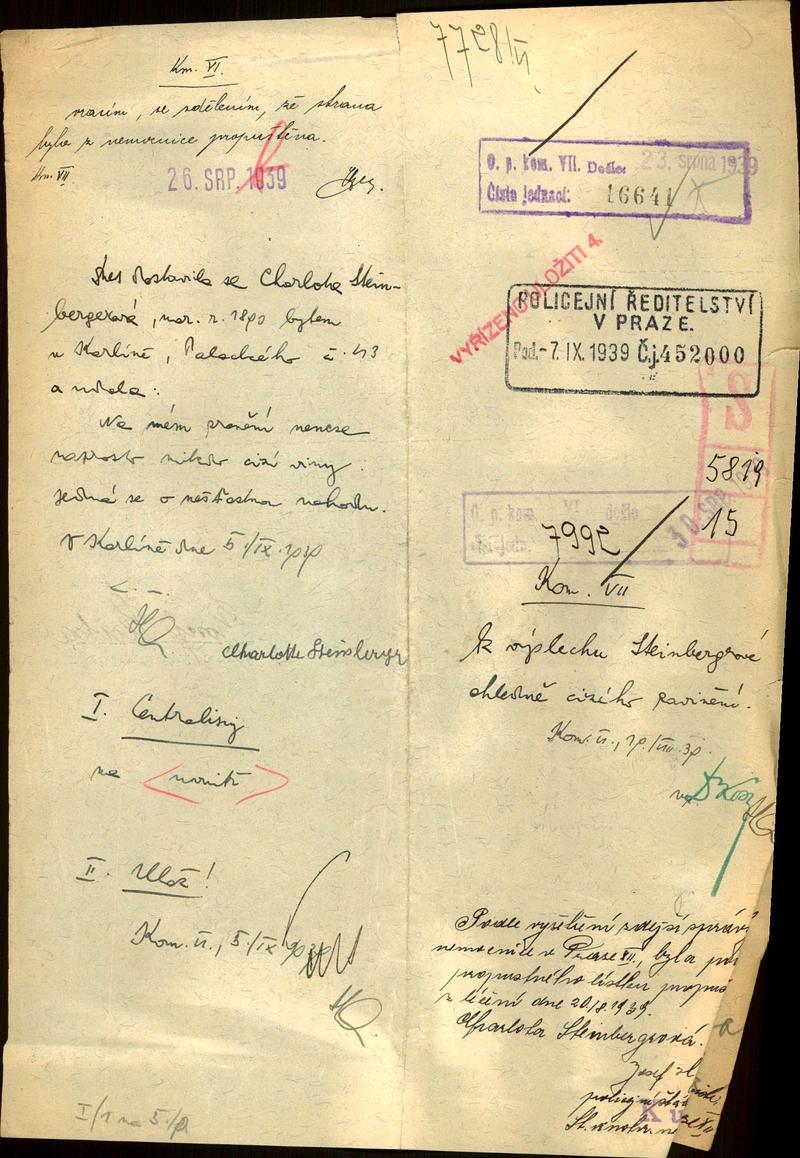 Km. VI.
vracím, se sdělením, že strana
byla z nemocnice propuštěna.
Km. VII
26. SRP. 1939
Dnes dostavila se Charlota Stein-
bergerová, nar. r. 1890 bytem
v Karlíně, Palackého č. 43
a udala:
Na mém zranění nenese
naprosto nikdo cizí viny.
Jedná se o nešťastnou nahodu.
V Karlíně dne 5/IX.
Charlotte Steinberger
I. Centralisuj
na
II. Ulož!
Kom. VI., 5./IX
I/1 na 5./9
7728/VI
O. p. kom. VII. Došlo: 23. srpna 1939
Číslo jednací: 16641
VYŘÍZENO ULOŽITI 4.
POLICEJNÍ ŘEDITELSTVÍ
V PRAZE.
Pod. -7. IX. 1939 Čj. 452000
S
5819
15
30. SRP.
O. p. kom. VI došlo
Čís. jedn. 7992
Kom. VII
K výslechu Steinbergrové
ohledně cizího zavinění.
Kom. VI.,
Podle vyšetření zdejší správy
nemocnice v Praze XII, byla
propustného lístku
z léčení dne 20/8 1939.
Charlota Steinbergrová.
Josef